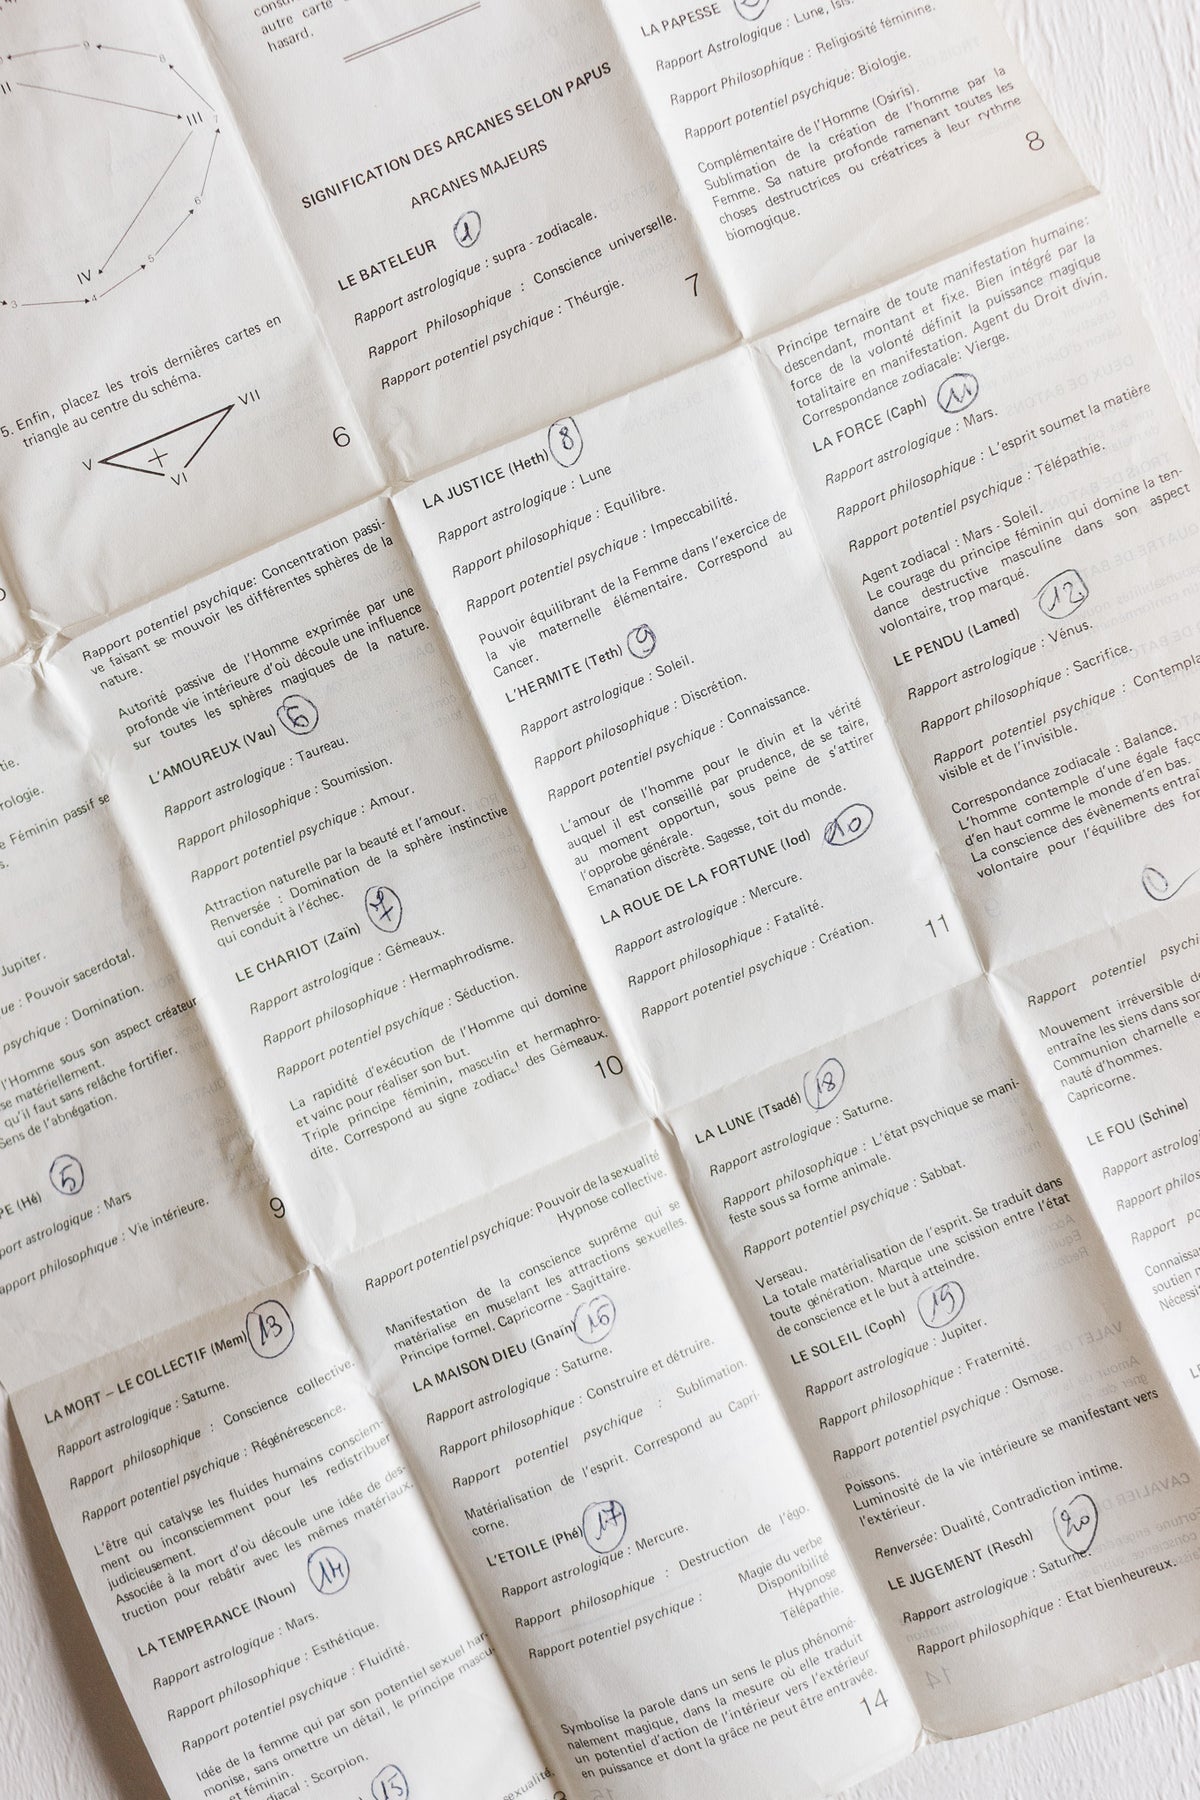 II
III
IV
9
8
7
6
5
4
3
5. Enfin, placez les trois dernières cartes en
triangle au centre du schéma.
V
VI
VII
6
autre carte
hasard.
SIGNIFICATION DES ARCANES SELON PAPUS
ARCANES MAJEURS
LE BATELEUR 1
Rapport astrologique : supra - zodiacale.
Rapport Philosophique : Conscience universelle.
Rapport potentiel psychique : Théurgie.
7
LA PAPESSE
Rapport Astrologique : Lune, Isis.
Rapport Philosophique : Religiosité féminine.
Rapport potentiel psychique: Biologie.
Complémentaire de l'Homme (Osiris).
Sublimation de la création de l'homme par la
Femme. Sa nature profonde ramenant toutes les
choses destructrices ou créatrices à leur rythme
biomogique.
8
tie.
rologie.
e Féminin passif se
s.
Jupiter.
ue : Pouvoir sacerdotal.
psychique : Domination.
l'Homme sous son aspect créateur
se matériellement.
qu'il faut sans relâche fortifier.
Sens de l'abnégation.
PE (Hé) 5
pport astrologique : Mars
apport philosophique : Vie intérieure.
9
Rapport potentiel psychique: Concentration passi-
ve faisant se mouvoir les différentes sphères de la
nature.
Autorité passive de l'Homme exprimée par une
profonde vie intérieure d'où découle une influence
sur toutes les sphères magiques de la nature.
L'AMOUREUX (Vau) 6
Rapport astrologique : Taureau.
Rapport philosophique : Soumission.
Rapport potentiel psychique : Amour.
Attraction naturelle par la beauté et l'amour.
Renversée : Domination de la sphère instinctive
qui conduit à l'échec.
LE CHARIOT (Zaïn) 7
Rapport astrologique : Gémeaux.
Rapport philosophique : Hermaphrodisme.
Rapport potentiel psychique : Séduction.
La rapidité d'exécution de l'Homme qui domine
et vainc pour réaliser son but.
Triple principe féminin, masculin et hermaphro-
dite. Correspond au signe zodiacal des Gémeaux.
10
LA JUSTICE (Heth) 8
Rapport astrologique : Lune
Rapport philosophique : Equilibre.
Rapport potentiel psychique : Impeccabilité.
Pouvoir équilibrant de la Femme dans l'exercice de
la vie maternelle élémentaire. Correspond au
Cancer.
L'HERMITE (Teth) 9
Rapport astrologique : Soleil.
Rapport philosophique : Discrétion.
Rapport potentiel psychique : Connaissance.
L'amour de l'homme pour le divin et la vérité
auquel il est conseillé par prudence, de se taire,
au moment opportun, sous peine de s'attirer
l'opprobe générale.
Emanation discrète. Sagesse, toit du monde.
LA ROUE DE LA FORTUNE (Iod) 10
Rapport astrologique : Mercure.
Rapport philosophique : Fatalité.
Rapport potentiel psychique : Création.
11
Principe ternaire de toute manifestation humaine:
descendant, montant et fixe. Bien intégré par la
force de la volonté définit la puissance magique
totalitaire en manifestation. Agent du Droit divin.
Correspondance zodiacale: Vierge.
LA FORCE (Caph) 11
Rapport astrologique : Mars.
Rapport philosophique : L'esprit soumet la matière
Rapport potentiel psychique : Télépathie.
Agent zodiacal : Mars - Soleil.
Le courage du principe féminin qui domine la ten-
dance destructive masculine dans son aspect
volontaire, trop marqué.
LE PENDU (Lamed) 12
Rapport astrologique : Vénus.
Rapport philosophique : Sacrifice.
Rapport potentiel psychique : Contempla
visible et de l'invisible.
Correspondance zodiacale : Balance.
L'homme contemple d'une égale faço
d'en haut comme le monde d'en bas.
La conscience des évènements entra
volontaire pour l'équilibre des for
LA MORT – LE COLLECTIF (Mem) 13
Rapport astrologique : Saturne.
Rapport philosophique : Conscience collective.
Rapport potentiel psychique : Régénérescence.
L'être qui catalyse les fluides humains consciem-
ment ou inconsciemment pour les redistribuer
judicieusement.
Associée à la mort d'où découle une idée de des-
truction pour rebâtir avec les mêmes matériaux.
LA TEMPERANCE (Noun) 14
Rapport astrologique : Mars.
Rapport philosophique : Esthétique.
Rapport potentiel psychique : Fluidité.
Idée de la femme qui par son potentiel sexuel har-
monise, sans omettre un détail, le principe mascu-
et féminin.
diacal : Scorpion.
15
sexualité.
Rapport potentiel psychique: Pouvoir de la sexualité
Hypnose collective.
Manifestation de la conscience suprême qui se
matérialise en muselant les attractions sexuelles.
Principe formel. Capricorne - Sagittaire.
LA MAISON DIEU (Gnaïn) 16
Rapport astrologique : Saturne.
Rapport philosophique : Construire et détruire.
Rapport potentiel psychique : Sublimation.
Matérialisation de l'esprit. Correspond au Capri-
corne.
L'ETOILE (Phé) 17
Rapport astrologique : Mercure.
Rapport philosophique : Destruction de l'égo.
Rapport potentiel psychique : Magie du verbe
Disponibilité
Hypnose
Télépathie.
Symbolise la parole dans un sens le plus phénomé-
nalement magique, dans la mesure où elle traduit
un potentiel d'action de l'intérieur vers l'extérieur
en puissance et dont la grâce ne peut être entravée.
14
LA LUNE (Tsadé) 18
Rapport astrologique : Saturne.
Rapport philosophique : L'état psychique se mani-
feste sous sa forme animale.
Rapport potentiel psychique : Sabbat.
Verseau.
La totale matérialisation de l'esprit. Se traduit dans
toute génération. Marque une scission entre l'état
de conscience et le but à atteindre.
LE SOLEIL (Coph) 19
Rapport astrologique : Jupiter.
Rapport philosophique : Fraternité.
Rapport potentiel psychique : Osmose.
Poissons.
Luminosité de la vie intérieure se manifestant vers
l'extérieur.
Renversée: Dualité, Contradiction intime.
LE JUGEMENT (Resch) 20
Rapport astrologique : Saturne.
Rapport philosophique : Etat bienheureux.
Rapport potentiel psychi
Mouvement irréversible d
entraîne les siens dans son
Communion charnelle e
nauté d'hommes.
Capricorne.
LE FOU (Schine)
Rapport astrologi
Rapport philos
Rapport po
Connaissa
soutien n
Nécessi